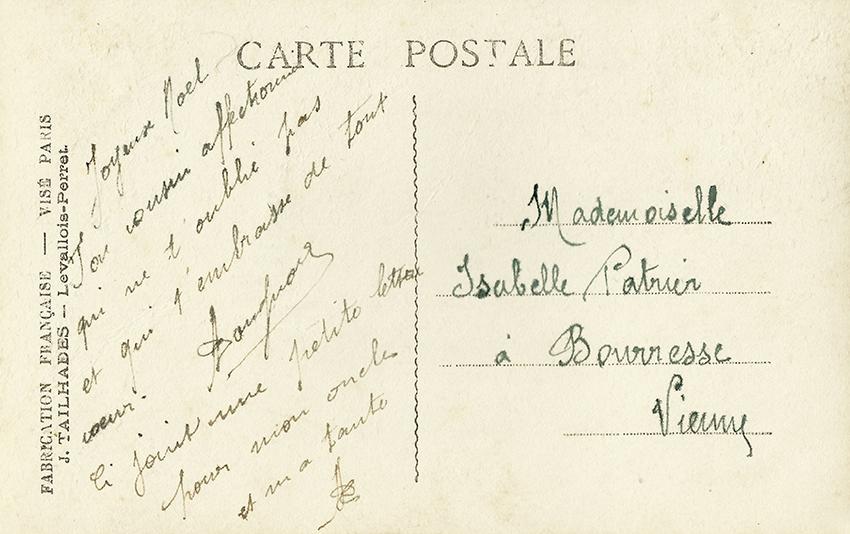 CARTE POSTALE
FABRICATION FRANÇAISE — VISÉ PARIS
J. TAILHADES — Levallois-Perret.
Joyeux Noel
Ton cousin affectionné
qui ne t'oublié pas
et qui t'embrasse de tout
cœur.
Ci joint une petite lettre
pour mon oncle
et ma tante
Mademoiselle
Isabelle Patrier
à Bourresse
Vienne